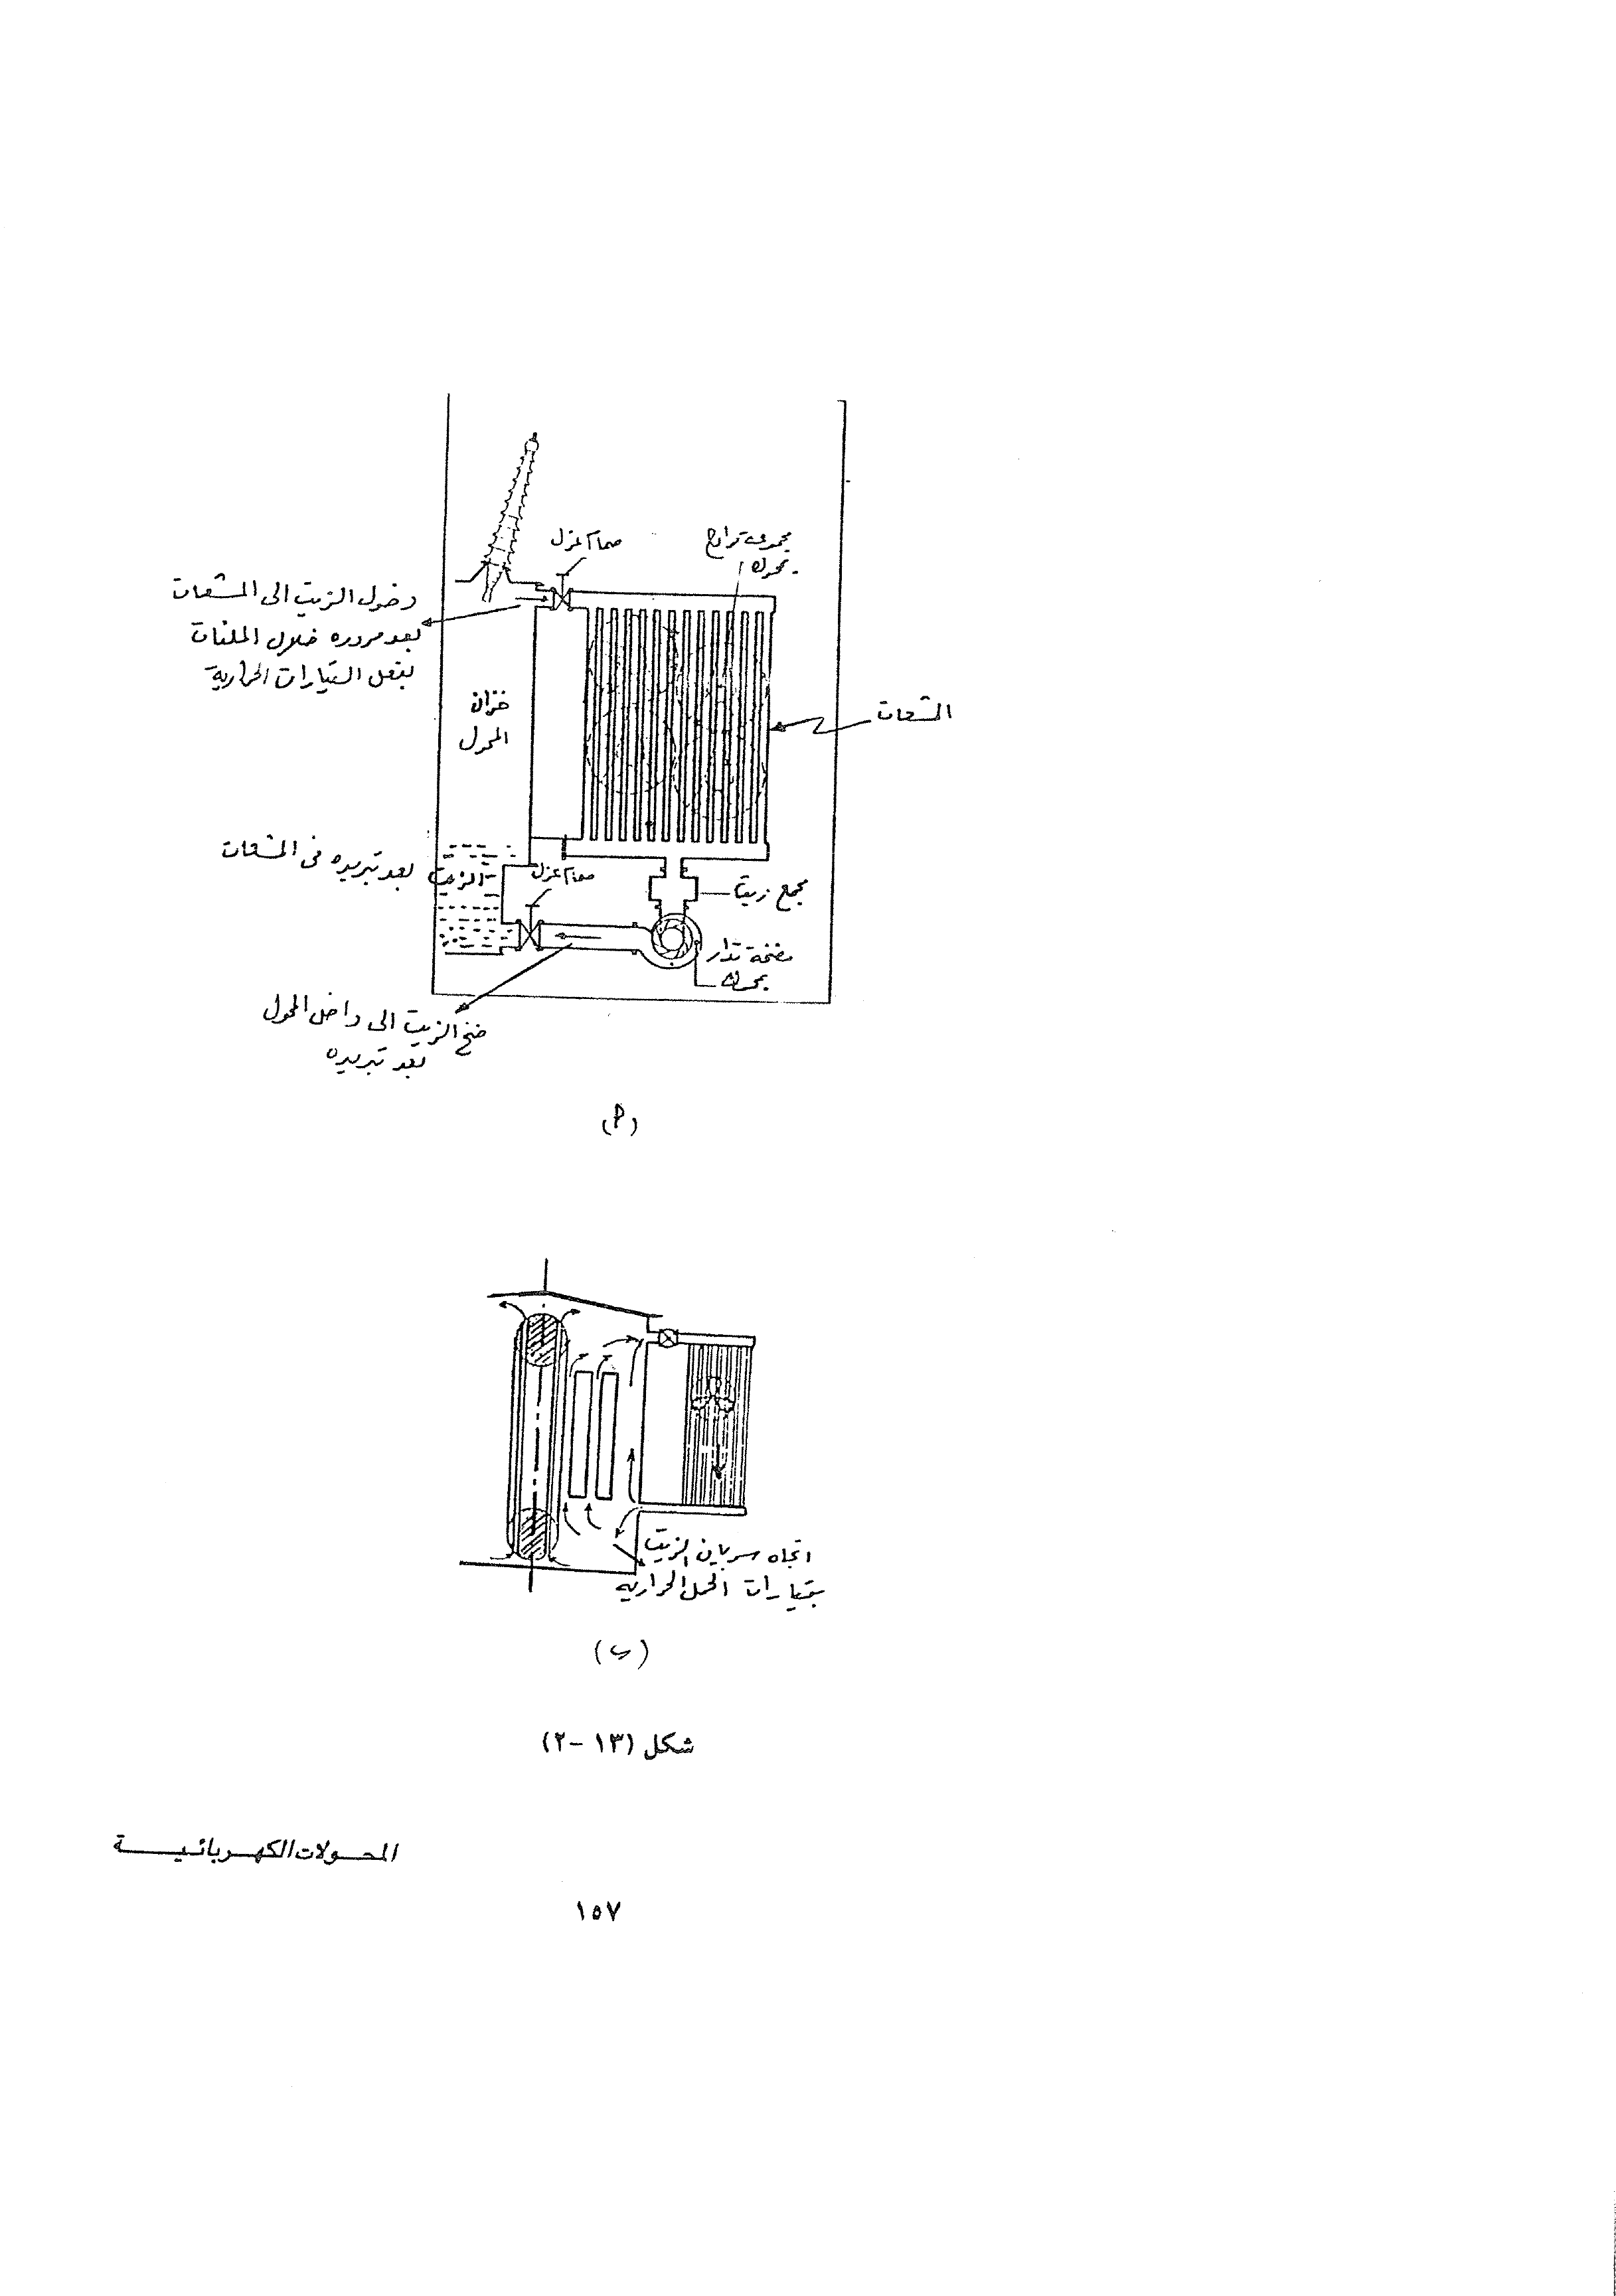 صمام عزل
مجموعة مراوح
بمحرك
دخول الزيت الى المشعات
بعد مروره خلال الملفات
بفعل التيارات الحرارية
خزان
المحول
المشعات
الزيت بعد تبريده فى المشعات
صمام عزل
مجمع زيت
مضخة تدار
بمحرك
ضخ الزيت الى داخل المحول
بعد تبريده
(أ)
اتجاه سريان الزيت
بتيارات الحمل الحراريه
(ب)
شكل (١٣ -٢)
المحولات الكهربائية
١٥٧